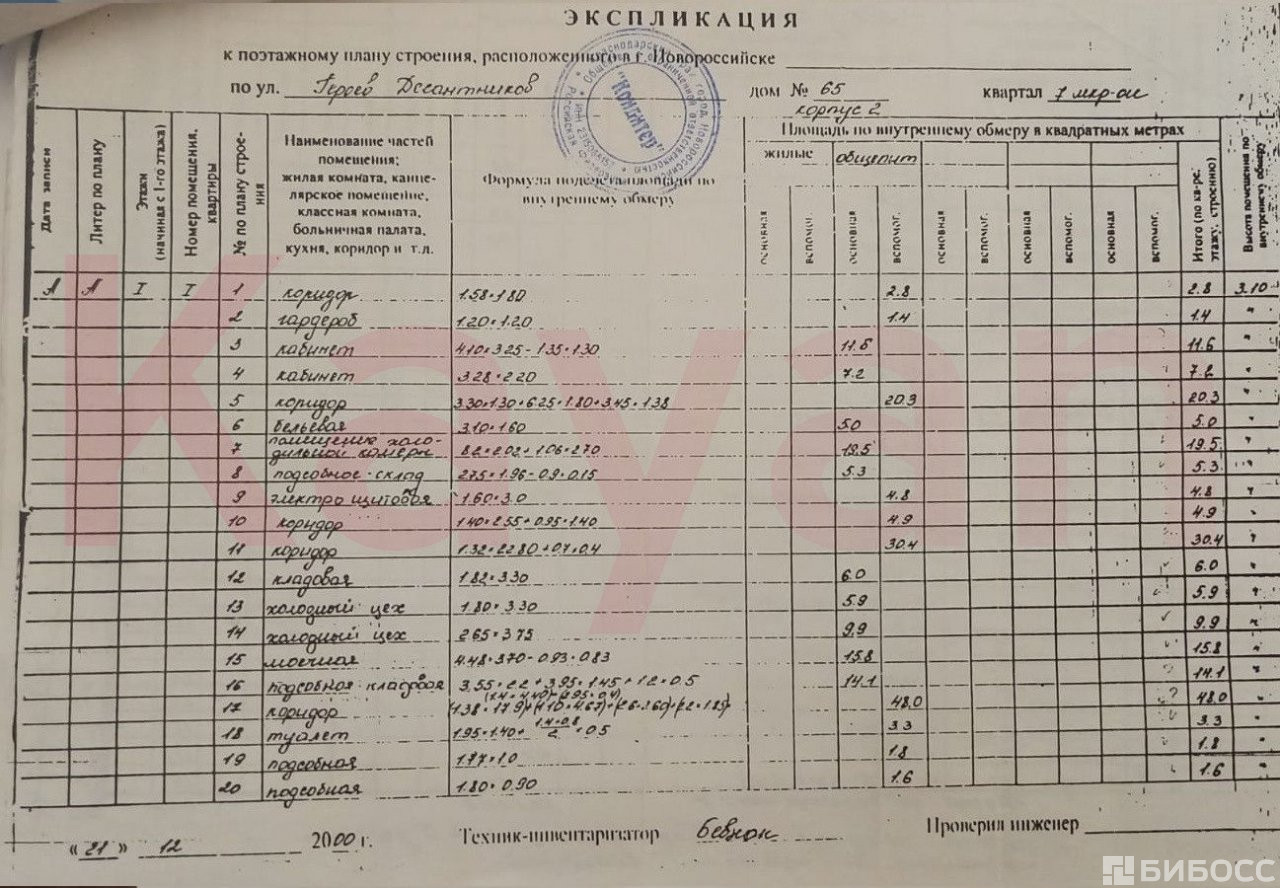 ЭКСПЛИКАЦИЯ
к поэтажному плану строения, расположенного в г. Новороссийске
по ул. Героев Десантников дом № 65 квартал 7 мкр-он
корпус 2
Дата записи
Литер по плану
Этажи (начиная с 1-го этажа)
Номер помещения, квартиры
№ по плану строения
Наименование частей помещения; жилая комната, канцелярское помещение, классная комната, больничная палата, кухня, коридор и т.л.
Формула подсчета площади по внутреннему обмеру
Площадь по внутреннему обмеру в квадратных метрах
жилые общепит
основная вспомог. основная вспомог. основная вспомог. основная вспомог. основная вспомог.
Итого (по кв-ре, этажу, строению)
Высота помещения по внутреннему обмеру
"Кондитер"
А А I I 1 коридор 1.58×1.80 2.8 2.8 3.10
2 гардероб 1.20×1.20 1.4 1.4 "
3 кабинет 4.10×3.25-1.35×1.30 11.6 11.6 "
4 кабинет 3.28×2.20 7.2 7.2 "
5 коридор 3.30×1.30+6.25×1.80+3.45×1.38 20.3 20.3 "
6 бельевая 3.10×1.60 5.0 5.0 "
7 помещение холодильной камеры 8.2×2.02+1.06×2.70 19.5 19.5 "
8 подсобное-склад 2.75×1.96-0.9×0.15 5.3 5.3 "
9 электрощитовая 1.60×3.0 4.8 4.8 "
10 коридор 1.40×2.55+0.95×1.40 4.9 4.9 "
11 коридор 1.32×22.80+0.7×0.4 30.4 30.4 "
12 кладовая 1.82×3.30 6.0 6.0 "
13 холодный цех 1.80×3.30 5.9 5.9 "
14 холодный цех 2.65×3.75 9.9 9.9 "
15 моечная 4.48×3.70-0.93×0.83 15.8 15.8 "
16 подсобная-кладовая 3.55×2.2+3.95×1.45+1.2×0.5 14.1 14.1 "
17 коридор 48.0 ? 48.0 "
18 туалет 1.95×1.40+ 1.4+0.8/2 ×0.5 3.3 3.3 "
19 подсобная 1.77×1.0 1.8 1.8 "
20 подсобная 1.80×0.90 1.6 1.6 "
« 21 » 12 2000 г. Техник-инвентаризатор Проверил инженер
Kayan
БИБОСС